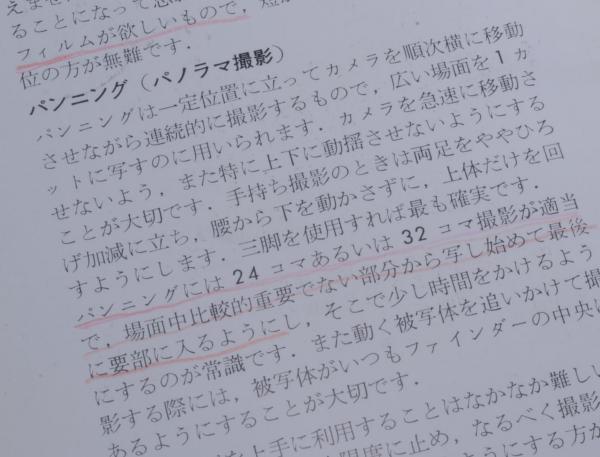 えません
ることになって
フィルムが欲しいもので，
位の方が無難です．
パンニング（パノラマ撮影）
パンニングは一定位置に立ってカメラを順次横に移動
させながら連続的に撮影するもので，広い場面を１カ
ットに写すのに用いられます．カメラを急速に移動さ
せないよう，また特に上下に動揺させないようにする
ことが大切です．手持ち撮影のときは両足をややひろ
げ加減に立ち，腰から下を動かさずに，上体だけを回
すようにします．三脚を使用すれば最も確実です．
パンニングには 24 コマあるいは 32 コマ撮影が適当
で，場面中比較的重要でない部分から写し始めて最後
に要部に入るようにし，そこで少し時間をかけるよう
にするのが常識です．また動く被写体を追いかけて撮
影する際には，被写体がいつもファインダーの中央に
あるようにすることが大切です．
を上手に利用することはなかなか難しい
限度に止め，なるべく撮影
ようにする方が